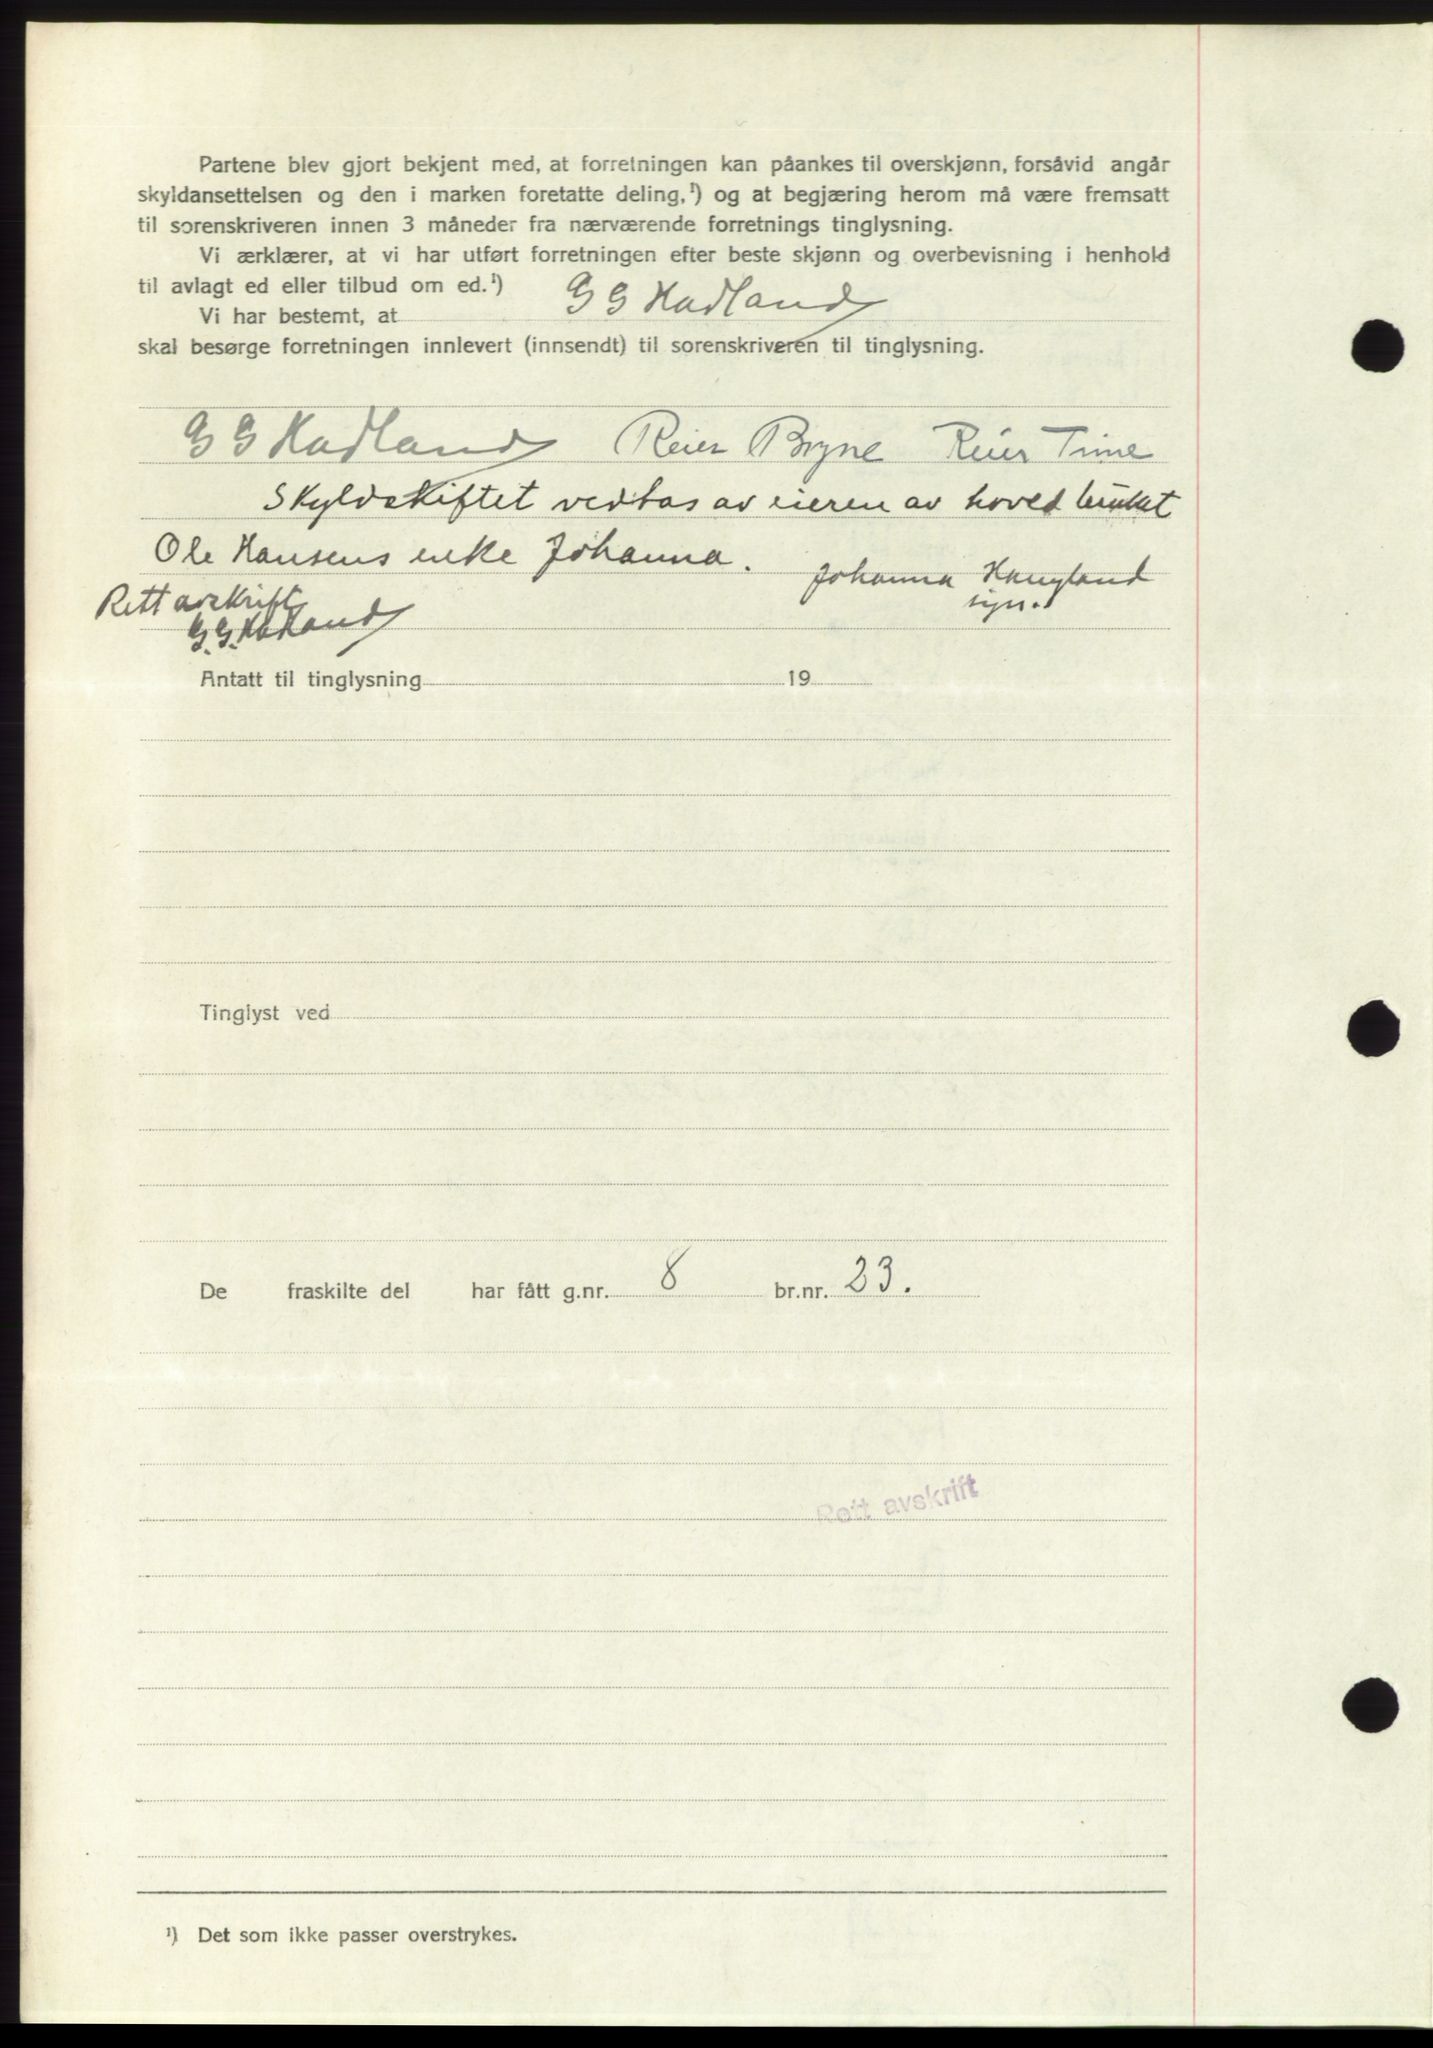 Partene blev gjort bekjent med, at forretningen kan påankes til overskjønn, forsåvid angår
skyldansettelsen og den i marken foretatte deling,¹) og at begjæring herom må være fremsatt
til sorenskriveren innen 3 måneder fra nærværende forretnings tinglysning.
Vi ærklærer, at vi har utført forretningen efter beste skjønn og overbevisning i henhold
til avlagt ed eller tilbud om ed.¹)
Vi har bestemt, at G G Hadland
skal besørge forretningen innlevert (innsendt) til sorenskriveren til tinglysning.
G G Hadland Reier Bryne Reier Time
Skyldskiftet vedtas av eieren av hoved bruket
Ole Hansens enke Johanna. Johanna Haugland
sign.
Rett avskrift
G. G. Hadland
Antatt til tinglysning 19
Tinglyst ved
De fraskilte del har fått g.nr. 8 br.nr. 23.
Rett avskrift
¹) Det som ikke passer overstrykes.